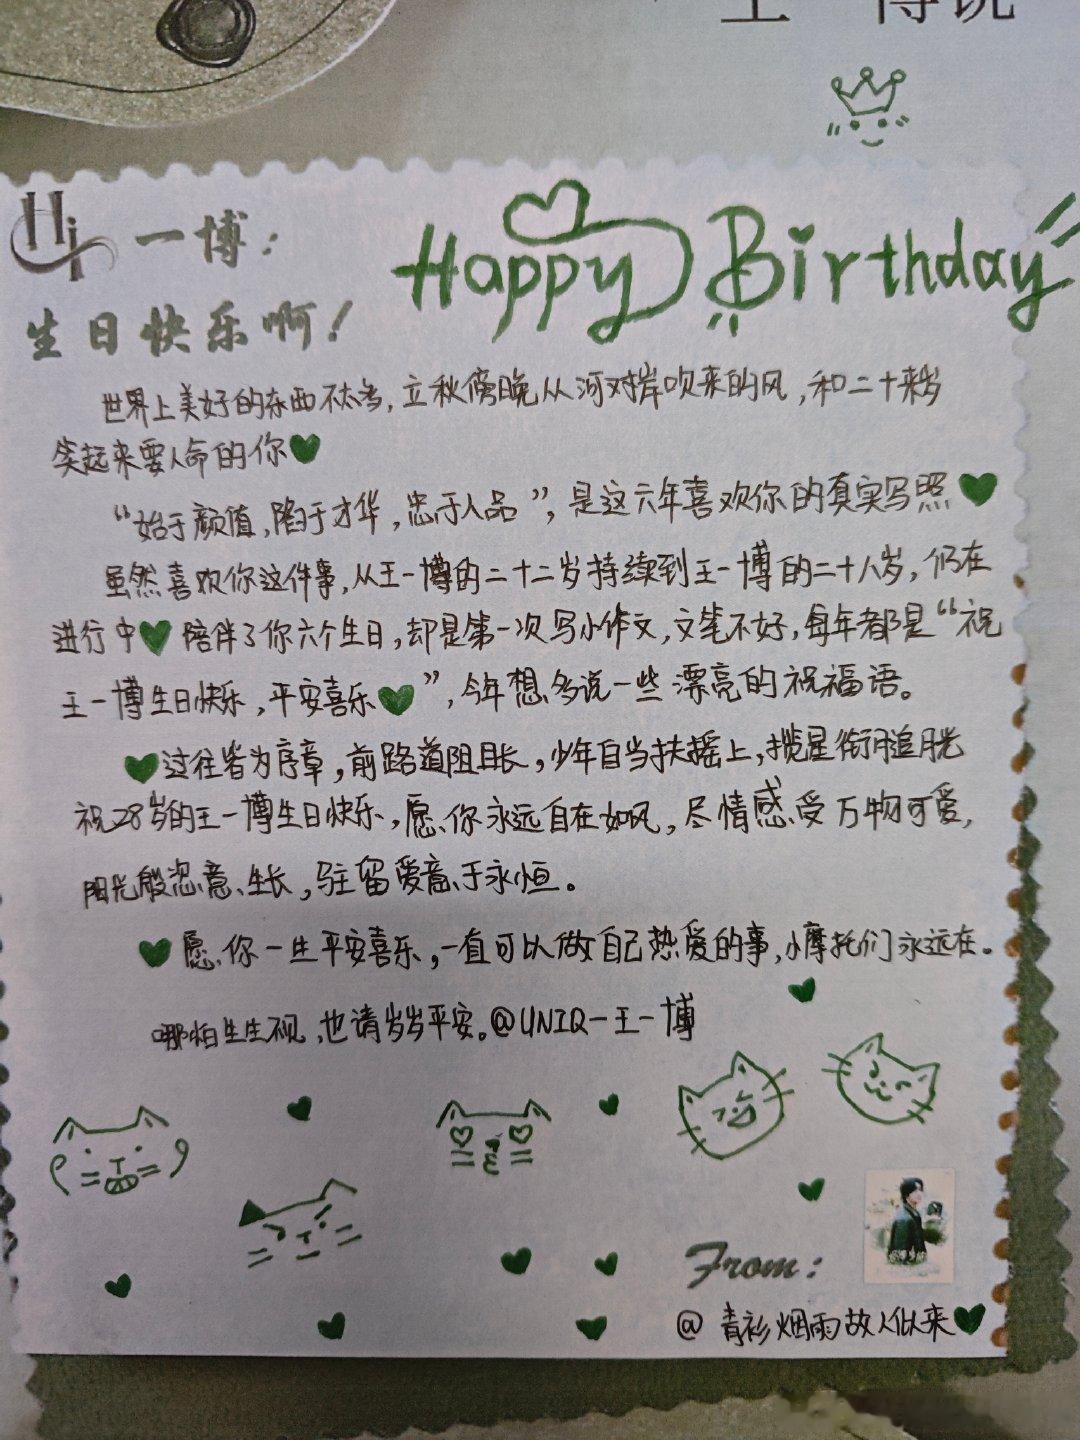 王一博说
Hi 一博：
Happy Birthday
生日快乐啊！
世界上美好的东西不太多，立秋傍晚从河对岸吹来的风，和二十来岁
笑起来要人命的你
“始于颜值，陷于才华，忠于人品”，是这六年喜欢你的真实写照
虽然喜欢你这件事，从王一博的二十二岁持续到王一博的二十八岁，仍在
进行中 陪伴了你六个生日，却是第一次写小作文，文笔不好，每年都是“祝
王一博生日快乐，平安喜乐”，今年想多说一些漂亮的祝福语。
过往皆为序章，前路道阻且长，少年自当扶摇上，揽星衔月追月光
祝28岁的王一博生日快乐，愿你永远自在如风，尽情感受万物可爱，
阳光般恣意生长，驻留爱意于永恒。
愿你一生平安喜乐，一直可以做自己热爱的事，小摩托们永远在。
哪怕生生不见，也请岁岁平安。@UNIQ-王一博
From:
@青衫烟雨故人似来